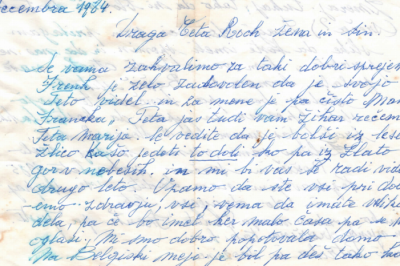 ecembra 1984.
Draga Teta Roch žena in sin.
Se vama zahvalimo za taki dobri sprejem
Frenk je zelo zadovolen da je svojo
Teto videl in za mene je pa čisto
Francka, Teta jas Ludi vam zihar rečem
Teta marija. Le vedite da je bolši iz lese
žlico kašo jedoti to doli ko pa iz zlato
gor v nebesih. in mi bi vas še radi vid
drugo leto. Upamo da ste vsi pri dob
emo zdravju vsi, vema da imate velik
dela, pa če bo imel ker malo časa pa se
oglasi. Mi smo dobro popotovala domo
Na Belgiski meje je bol pa deš tako